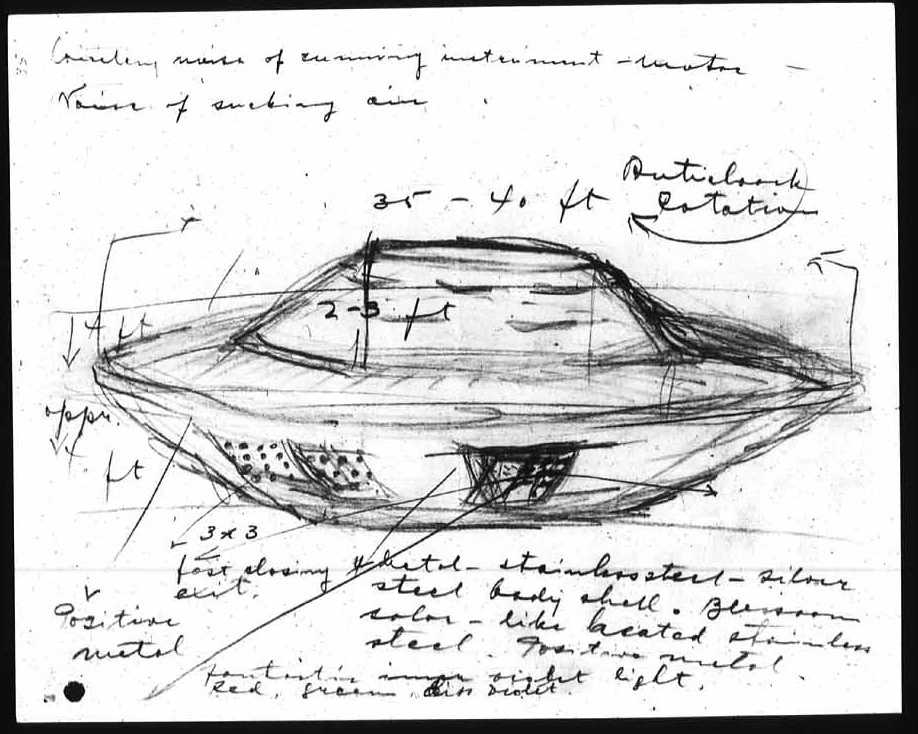 noise of running instrument - motor -
Noise of sucking air.
Anticlock
35 - 40 ft
Rotation
2-3 ft
4 ft
appr.
4 ft
3 x 3
fast closing
exit.
Metal - stainless steel - silver
steel body shell.
color - like heated stainless
steel. Positive metal
Positive
metal
inner violet light.
Red, green, violet.